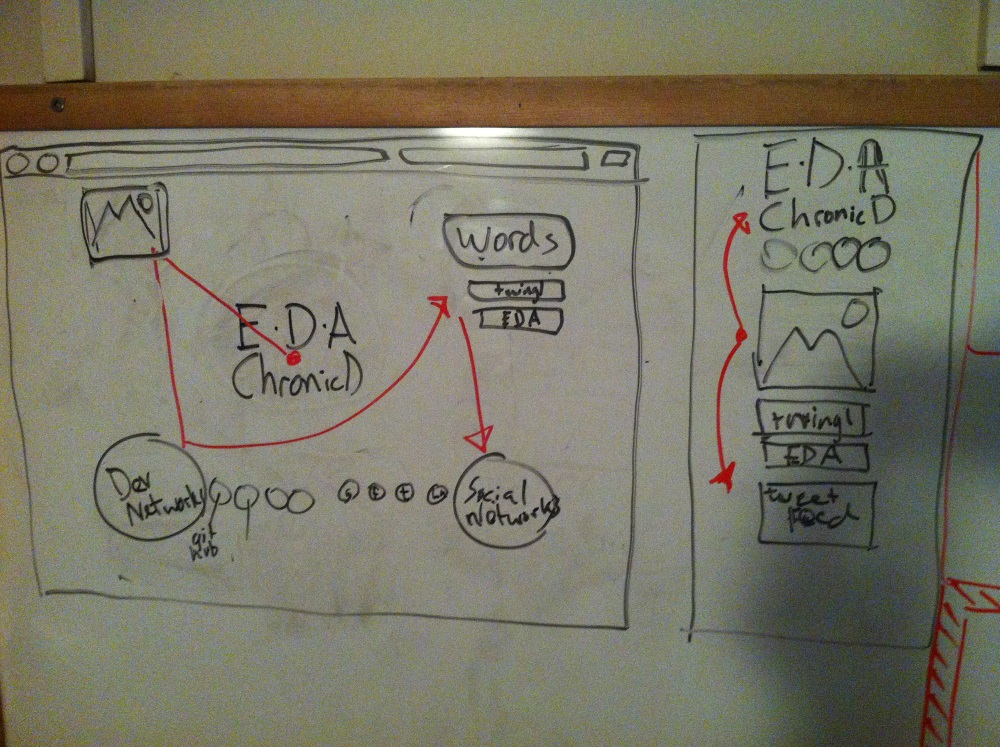 Words
twingl
EDA
E·D·A
ChronicD
Dev
Networks
git
hub
Social
Networks
E·D·A
ChronicD
twingl
EDA
tweet
Feed